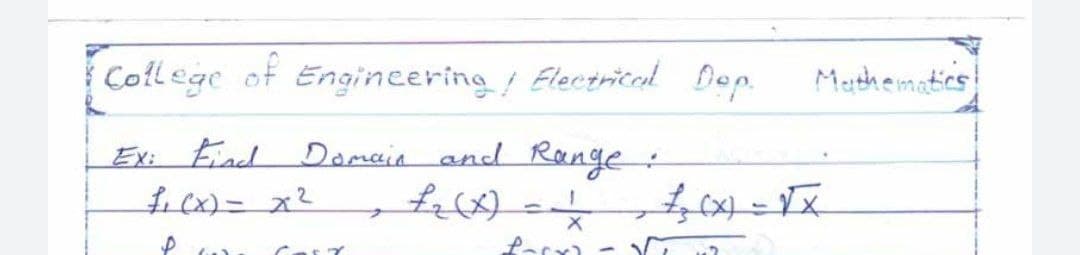 College of Engineering / Electrical Dep. Mathematics
Ex: Find Domain and Range :
f₁(x) = x² , f₂(x) = 1/x , f₃(x) = √x